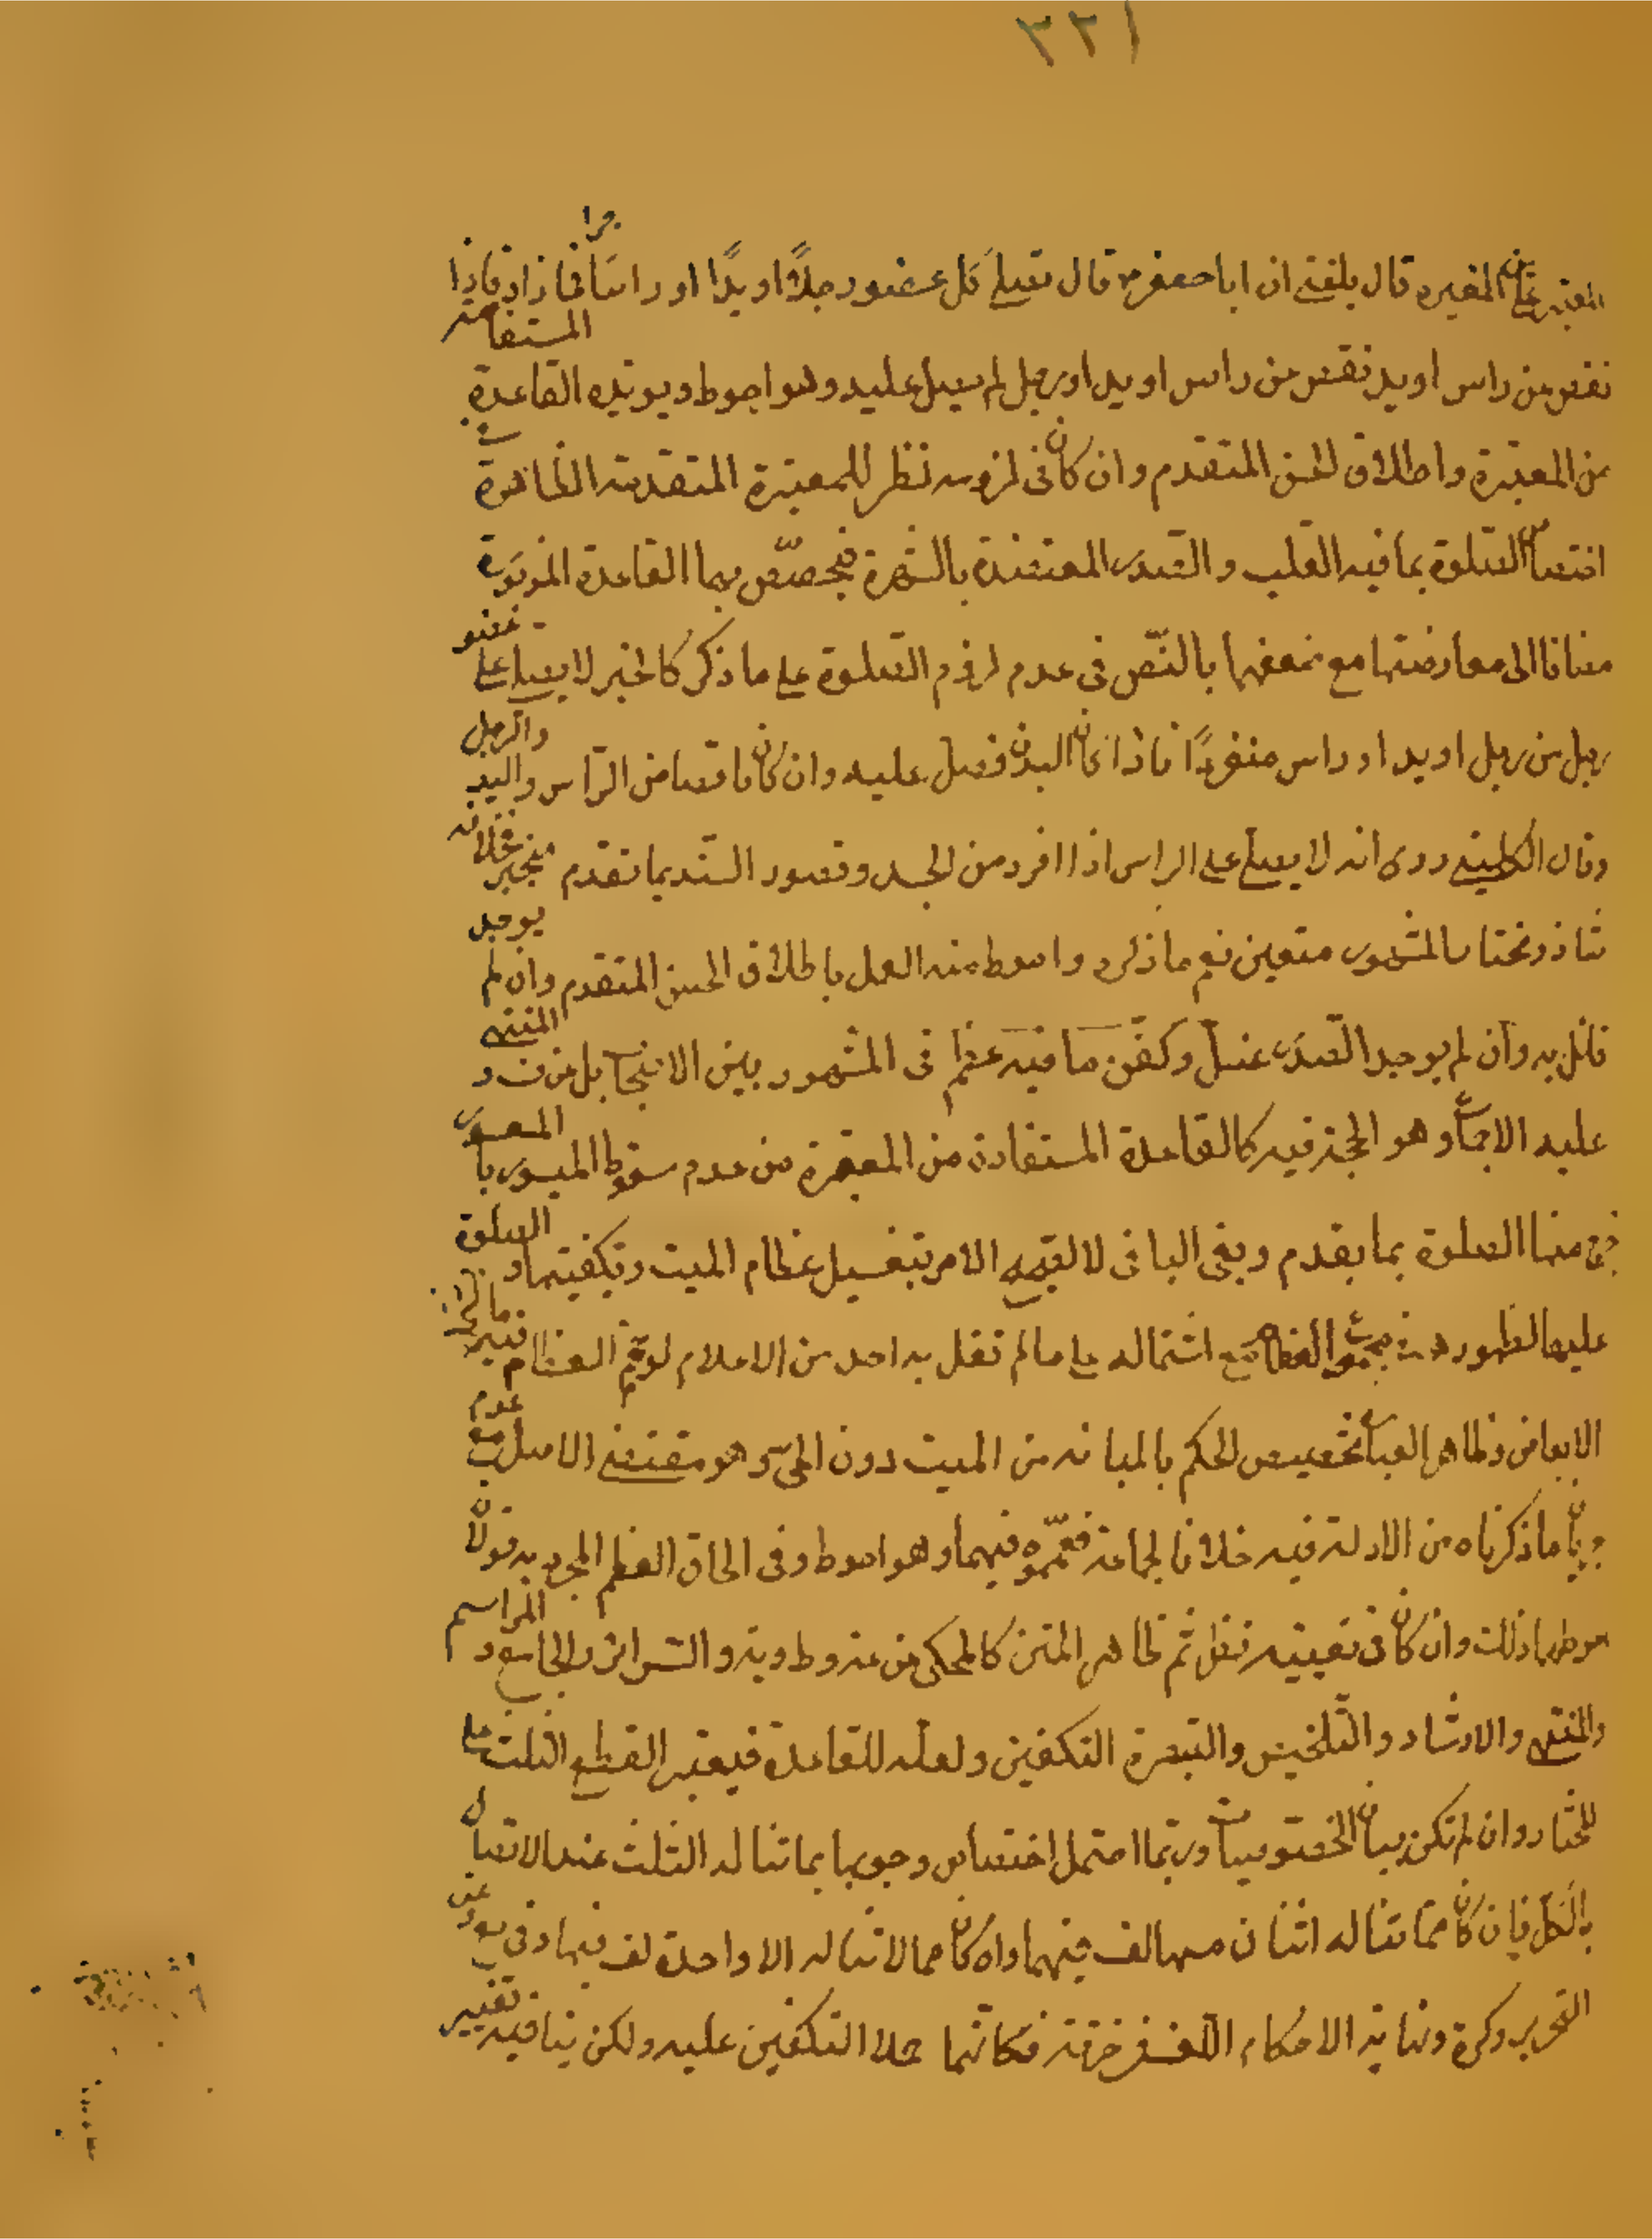 ٣٢١
المغيره قال بلغني ان ابا جعفر ع قال يصلى كل عضو رجلًا او يدًا او راسًا جزا فما زاد فاذا
نقص من راس او يد نقص من راس او يد او رجل لم يصل عليه وهو احوط ويؤيده القاعدة المستفا
من المعتبرة واطلاق الحسن المتقدم وان كان فى لزومه نظر للمعتبرة المتقدمة الظاهرة فى
اختصاص الصلوة بما فيه القلب والصدر المعتضدة بالشهرة فيخصّص بهما القاعدة المزبورة
مضافا الى معارضتها مع ضعفها بالنّص فى عدم لزوم الصلوة على ما ذكر كالخبر لا يصلى على عضو
رجل من رجل او يد او راس منفردًا فاذا كان البدن فصل عليه وان كان ناقصا من الرّاس واليد والرجل
وقال الكلينى روى انه لا يصلى على الراس اذا افرد من الجسد وقصور السّند بما تقدم منجبر
شاذ ومختار المشهور متعين نعم ما ذكره واحوط منه العمل باطلاق الحسن المتقدم وان لم يوجد
قائل به وان لم يوجد الصّدر غسل وكفّن ما فيه عظم فى المشهور بين الاصحاب بل عن ف و المنتهى
عليه الاجماع وهو الحجة فيه كالقاعدة المستفادة من المعتبرة من عدم سقوط الميسور بالمعسور
خرج منها الصلوة بما تقدم وبقى الباقى لا الامر بتغسيل عظام الميت وتكفينها و الصلوة
عليها لظهوره فى مجموع العظام مع اشتماله على ما لم نقل به احد من الاعلام لو عم العظام
الابعاض وظاهر العبارة تخصيص الحكم بالمبانه من الميت دون الحى وهو مقتضى الاصل مع عدم
جريان ما ذكرناه من الادلة فيه خلافا لجماعة فعمّموه فيهما وهو احوط وفى الحاق العظم المجرد به قولان
احوطهما ذلك وان كان فى تعيينه نظر ثم ظاهر المتن كالمحكى عن عنه و ط و يه والسرائر والجامع و المراسم
والمنتهى والارشاد والتلخيص والتبصرة التكفين ولعله للقاعدة فيعتبر القطع الثلث على
المختار وان لم تكن بسان الخصوصيات وربّما احتمل اختصاص وجوبها بما تناله الثلث عند الاتصال
بالكل فان كان ممّا تناله اثنان منها لف فيهما وان كان مما لا تناله الا واحدة لف فيها وفى يع وعن
التحرير وكرة ونهاية الاحكام اللف فى خرقة فكانّهما حملا التكفين عليه ولكن ينافيه تعبير